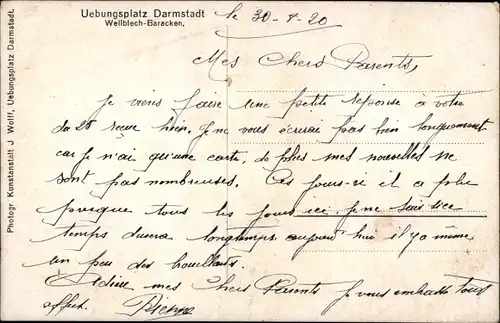 Uebungsplatz Darmstadt
Wellblech-Baracken.
le 30-8-20
Mes Chers Parents,
Je viens faire une petite reponse à votre
du 25 recue hier. Je ne vous écrirai pas bien longuement
car je n'ai qu'une carte, de plus mes nouvelles ne
sont pas nombreuses. Ces jours-ci il a plu
presque tous les jours ici, je ne sais si ce
temps durera longtemps aujourd'hui il y a même
un peu des brouillards.
Adieu mes Chers Parents Je vous embrasse tous
affect. Pierre
Photogr. Kunstanstalt J. Wolff, Uebungsplatz Darmstadt.